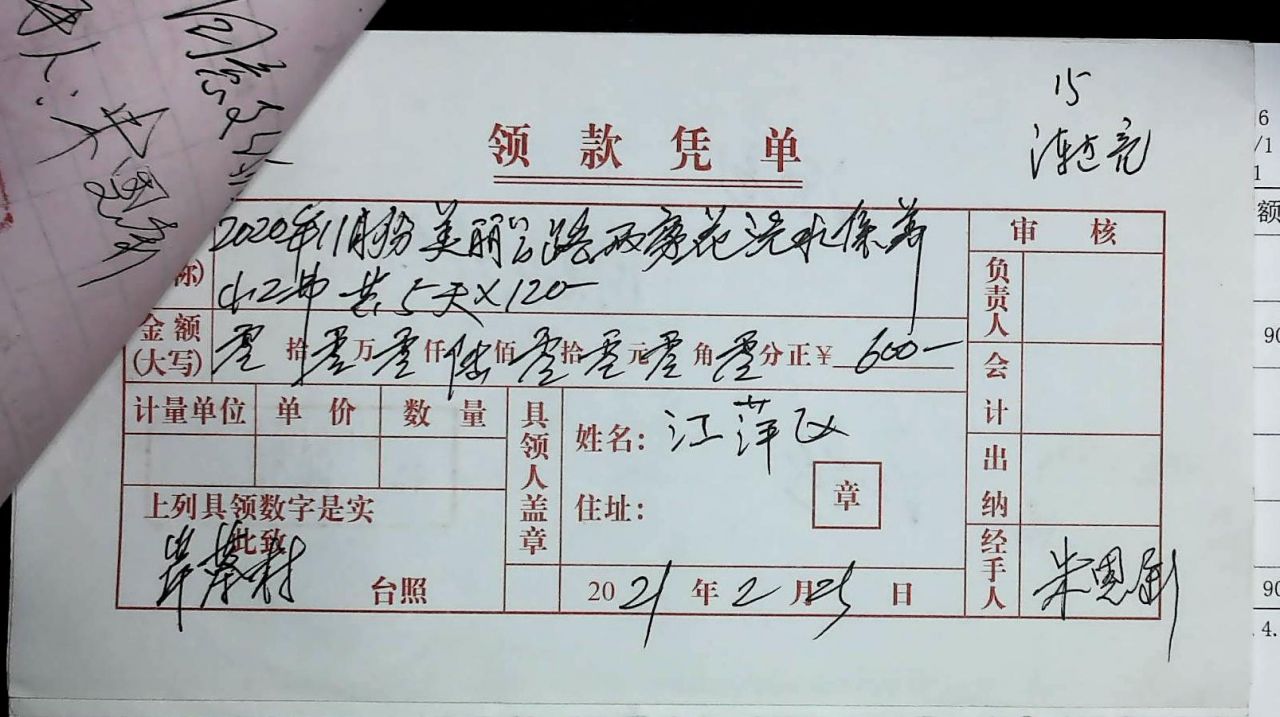 15
领款凭单
2020年11月份美丽公路两旁花浇水保养
小工费 共5天×120-
称)
金额
(大写)
零拾零万零仟陆佰零拾零元零角零分正¥600-
计量单位 单价 数量
上列具领数字是实
此致
台照
具领人盖章
姓名: 江萍
住址:
章
2021年2月25日
审核
负责人
会计
出纳
经手人 朱恩
6
/1
1
额
90
90
4.